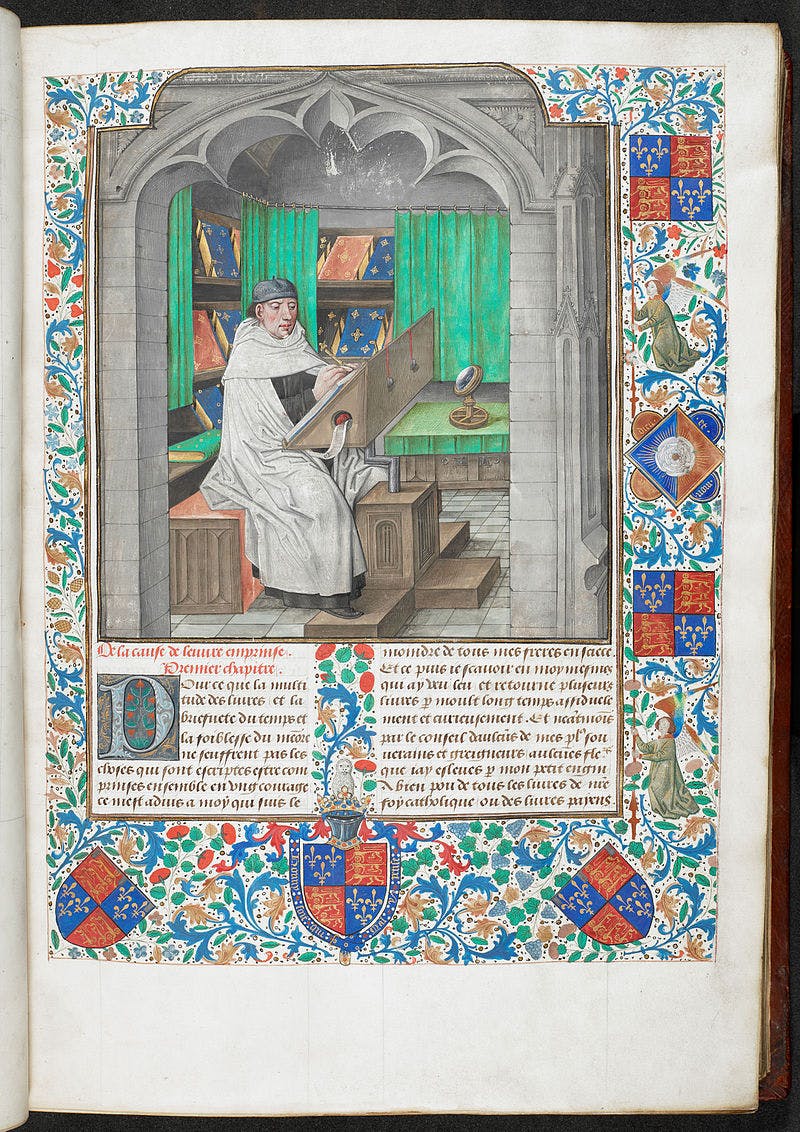 De la cause de leuure emprinse.
Premier chapitre.
Pour ce que la multi
tude des liures et la
briefuete du temps et
la foiblesse du
ne seuffrent pas les
choses qui sont escriptes estre com
prinses ensemble en ung couraige
ce mest aduis a moy qui suis le
moindre de tous mes freres en
Et ce puis ie scauoir en moy mesmes
qui ay veu leu et retourne plusieurs
liures p moult long temps assiduele
ment et curieusement. Et neatmois
par le conseil daulcus de mes
uerains et greigneurs aulcunes
que iay esleues p mon petit engin
A bien pou de tous les liures de nre
foy catholique ou des liures payens